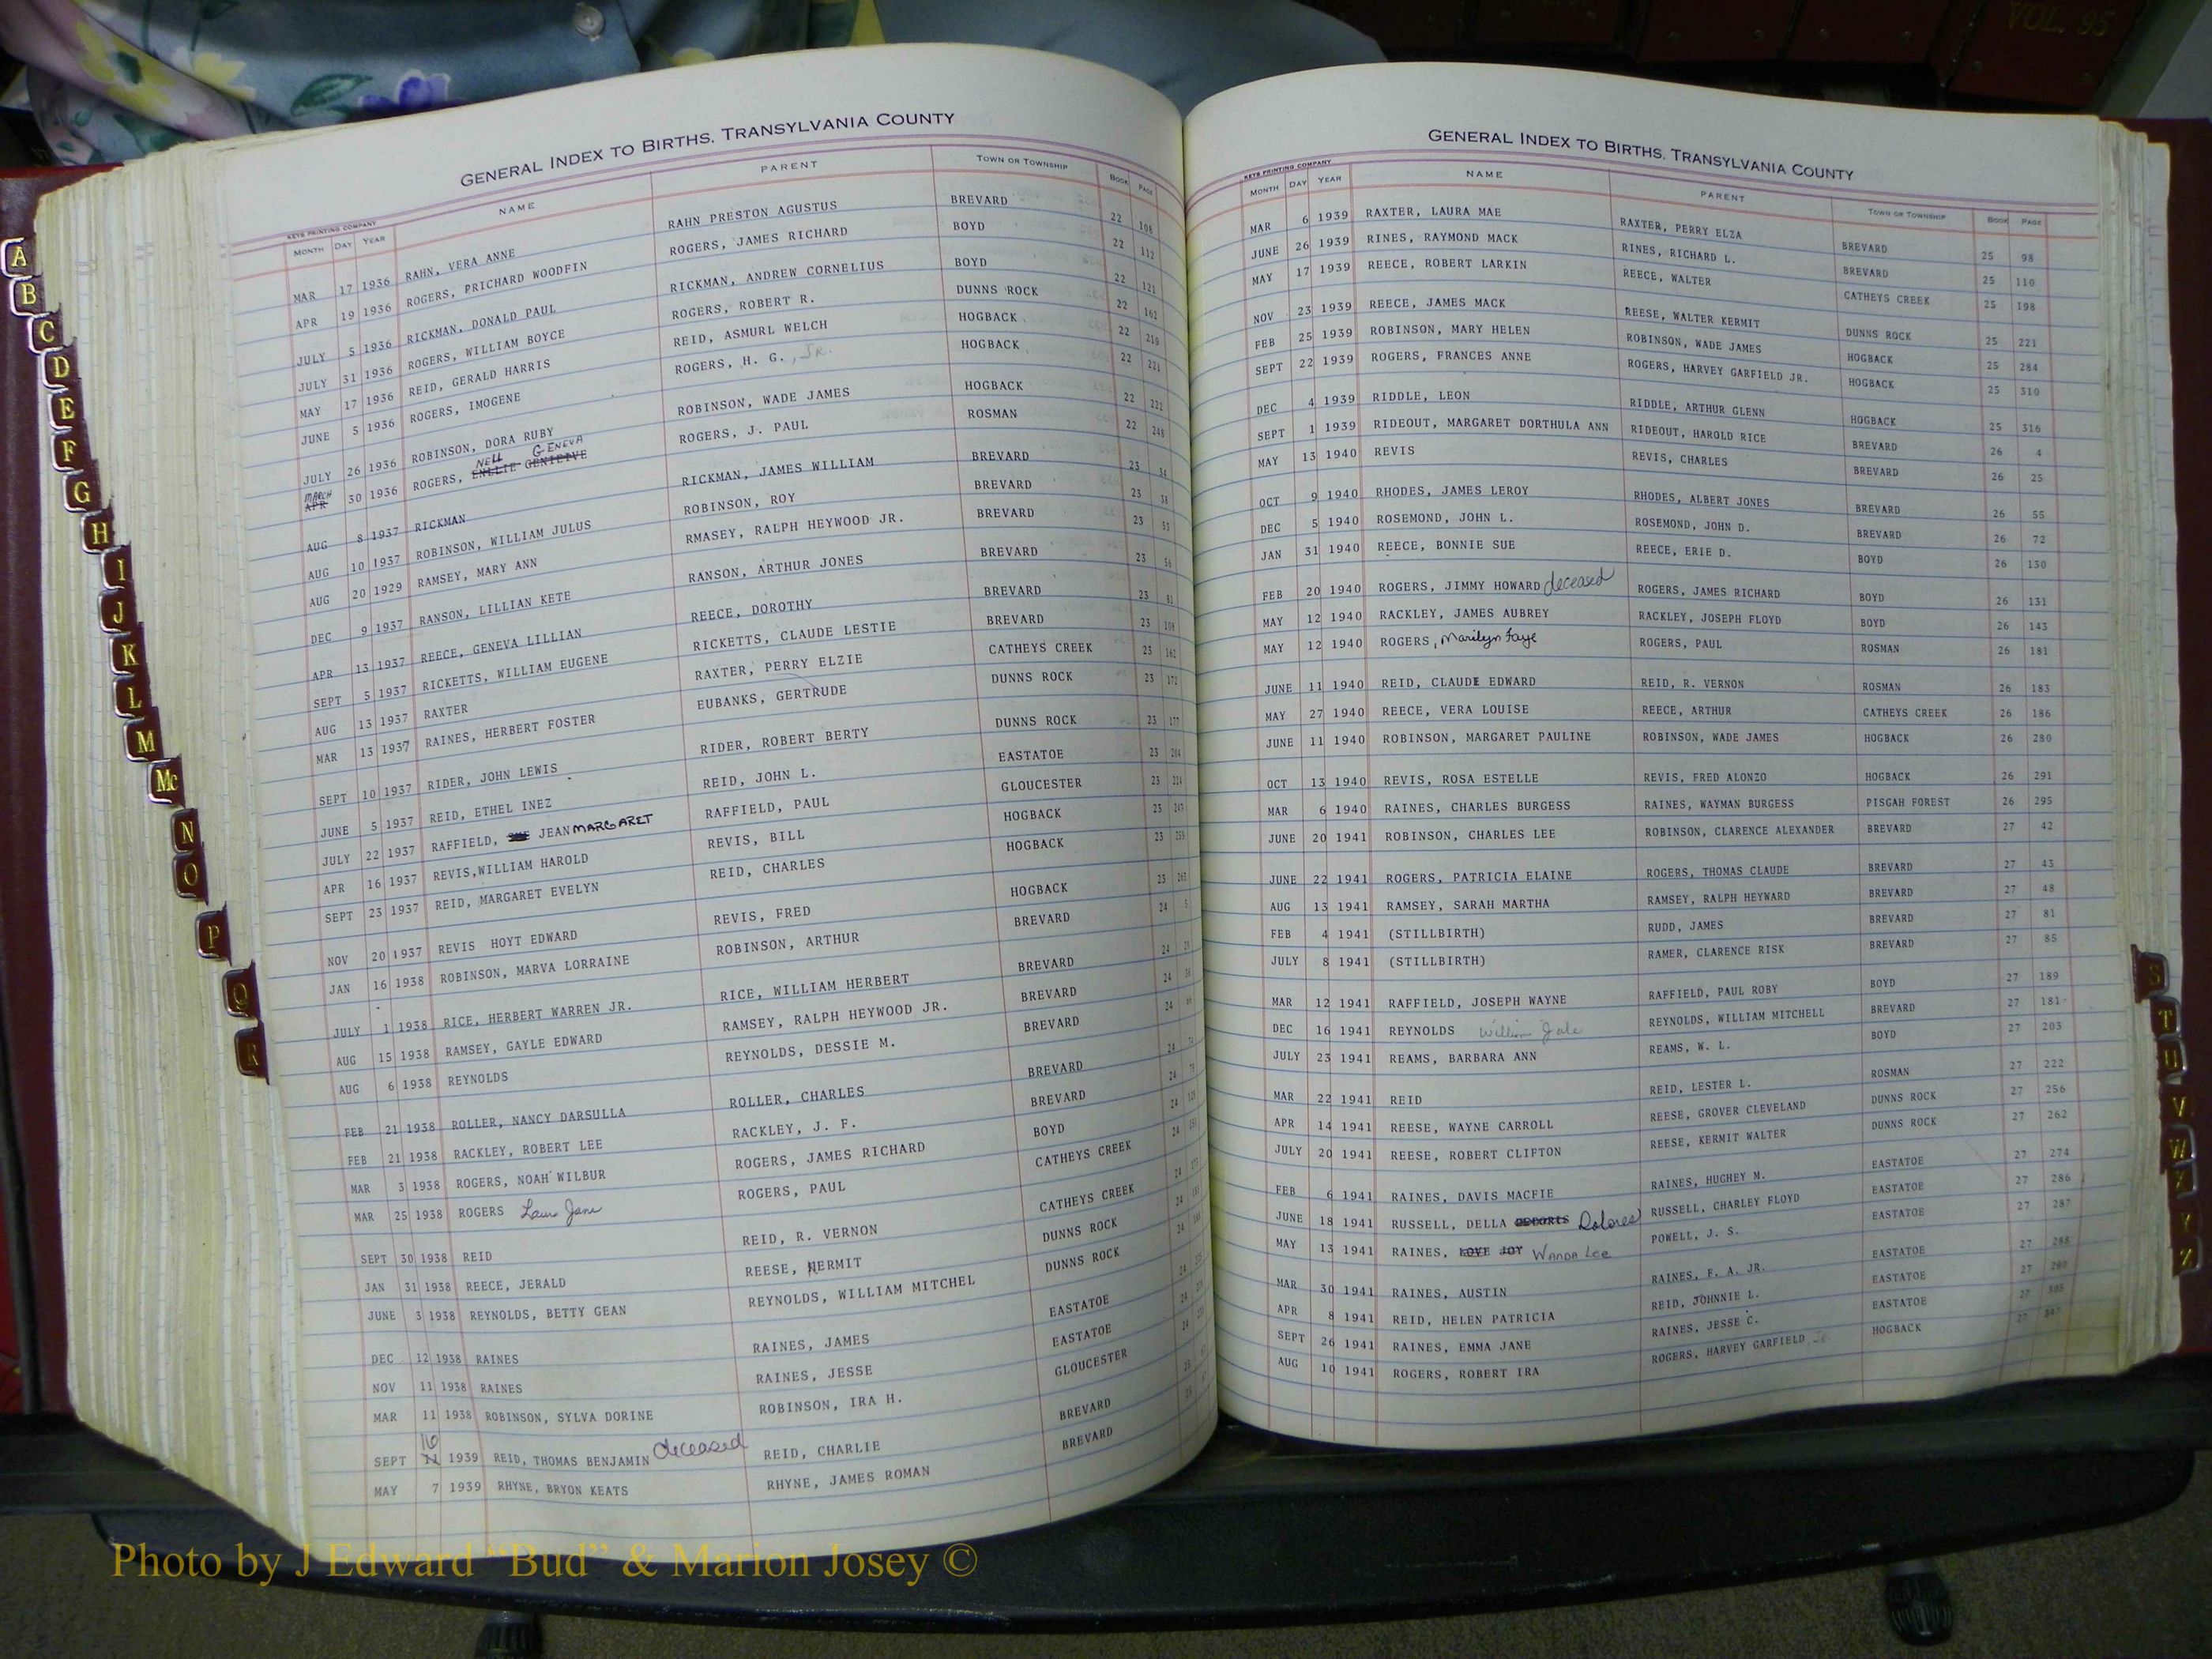 VOL. 95
A
B
C
D
E
F
G
H
I
J
K
L
M
Mc
N
O
P
Q
R
GENERAL INDEX TO BIRTHS, TRANSYLVANIA COUNTY
KEYS PRINTING COMPANY
MONTH DAY YEAR NAME PARENT TOWN OR TOWNSHIP BOOK PAGE
MAR 17 1936 RAHN, VERA ANNE RAHN PRESTON AGUSTUS BREVARD 22 108
APR 19 1936 ROGERS, PRICHARD WOODFIN ROGERS, JAMES RICHARD BOYD 22 112
JULY 5 1936 RICKMAN, DONALD PAUL RICKMAN, ANDREW CORNELIUS BOYD 22 121
JULY 31 1936 ROGERS, WILLIAM BOYCE ROGERS, ROBERT R. DUNNS ROCK 22 162
MAY 17 1936 REID, GERALD HARRIS REID, ASMURL WELCH HOGBACK 22
JUNE 5 1936 ROGERS, IMOGENE ROGERS, H. G., Jr. HOGBACK 22
JULY 26 1936 ROBINSON, DORA RUBY ROBINSON, WADE JAMES HOGBACK 22 222
MARCH APR 30 1936 ROGERS, NELL GENEVA ROGERS, J. PAUL ROSMAN 22
AUG 8 1937 RICKMAN RICKMAN, JAMES WILLIAM BREVARD 23
AUG 10 1937 ROBINSON, WILLIAM JULUS ROBINSON, ROY BREVARD 23
AUG 20 1929 RAMSEY, MARY ANN RMASEY, RALPH HEYWOOD JR. BREVARD 23
DEC 9 1937 RANSON, LILLIAN KETE RANSON, ARTHUR JONES BREVARD 23 56
APR 13 1937 REECE, GENEVA LILLIAN REECE, DOROTHY BREVARD 23
SEPT 5 1937 RICKETTS, WILLIAM EUGENE RICKETTS, CLAUDE LESTIE BREVARD 23 108
AUG 13 1937 RAXTER RAXTER, PERRY ELZIE CATHEYS CREEK 23 162
MAR 13 1937 RAINES, HERBERT FOSTER EUBANKS, GERTRUDE DUNNS ROCK 23 172
SEPT 10 1937 RIDER, JOHN LEWIS RIDER, ROBERT BERTY DUNNS ROCK 23 177
JUNE 5 1937 REID, ETHEL INEZ REID, JOHN L. EASTATOE 23 204
JULY 22 1937 RAFFIELD, JEAN MARGARET RAFFIELD, PAUL GLOUCESTER 23 224
APR 16 1937 REVIS, WILLIAM HAROLD REVIS, BILL HOGBACK 23
SEPT 23 1937 REID, MARGARET EVELYN REID, CHARLES HOGBACK 23
NOV 20 1937 REVIS HOYT EDWARD REVIS, FRED HOGBACK 23
JAN 16 1938 ROBINSON, MARVA LORRAINE ROBINSON, ARTHUR BREVARD 24
JULY 1 1938 RICE, HERBERT WARREN JR. RICE, WILLIAM HERBERT BREVARD 24
AUG 15 1938 RAMSEY, GAYLE EDWARD RAMSEY, RALPH HEYWOOD JR. BREVARD 24
AUG 6 1938 REYNOLDS REYNOLDS, DESSIE M. BREVARD 24
FEB 21 1938 ROLLER, NANCY DARSULLA ROLLER, CHARLES BREVARD 24
FEB 21 1938 RACKLEY, ROBERT LEE RACKLEY, J. F. BREVARD 24
MAR 3 1938 ROGERS, NOAH WILBUR ROGERS, JAMES RICHARD BOYD 24
MAR 25 1938 ROGERS Laura Jane ROGERS, PAUL CATHEYS CREEK 24
SEPT 30 1938 REID REID, R. VERNON CATHEYS CREEK 24
JAN 31 1938 REECE, JERALD REESE, KERMIT DUNNS ROCK 24
JUNE 3 1938 REYNOLDS, BETTY GEAN REYNOLDS, WILLIAM MITCHEL DUNNS ROCK 24
DEC 12 1938 RAINES RAINES, JAMES EASTATOE 24
NOV 11 1938 RAINES RAINES, JESSE EASTATOE 24
MAR 11 1938 ROBINSON, SYLVA DORINE ROBINSON, IRA H. GLOUCESTER 24
SEPT 16 1939 REID, THOMAS BENJAMIN deceased REID, CHARLIE BREVARD 25
MAY 7 1939 RHYNE, BRYON KEATS RHYNE, JAMES ROMAN BREVARD 25
GENERAL INDEX TO BIRTHS, TRANSYLVANIA COUNTY
KEYS PRINTING COMPANY
MONTH DAY YEAR NAME PARENT TOWN OR TOWNSHIP BOOK PAGE
MAR 6 1939 RAXTER, LAURA MAE RAXTER, PERRY ELZA BREVARD 25 98
JUNE 26 1939 RINES, RAYMOND MACK RINES, RICHARD L. BREVARD 25 110
MAY 17 1939 REECE, ROBERT LARKIN REECE, WALTER CATHEYS CREEK 25 198
NOV 23 1939 REECE, JAMES MACK REESE, WALTER KERMIT DUNNS ROCK 25 221
FEB 25 1939 ROBINSON, MARY HELEN ROBINSON, WADE JAMES HOGBACK 25 284
SEPT 22 1939 ROGERS, FRANCES ANNE ROGERS, HARVEY GARFIELD JR. HOGBACK 25 310
DEC 4 1939 RIDDLE, LEON RIDDLE, ARTHUR GLENN HOGBACK 25 316
SEPT 1 1939 RIDEOUT, MARGARET DORTHULA ANN RIDEOUT, HAROLD RICE BREVARD 26 4
MAY 13 1940 REVIS REVIS, CHARLES BREVARD 26 25
OCT 9 1940 RHODES, JAMES LEROY RHODES, ALBERT JONES BREVARD 26 55
DEC 5 1940 ROSEMOND, JOHN L. ROSEMOND, JOHN D. BREVARD 26 72
JAN 31 1940 REECE, BONNIE SUE REECE, ERIE D. BOYD 26 130
FEB 20 1940 ROGERS, JIMMY HOWARD deceased ROGERS, JAMES RICHARD BOYD 26 131
MAY 12 1940 RACKLEY, JAMES AUBREY RACKLEY, JOSEPH FLOYD BOYD 26 143
MAY 12 1940 ROGERS, Marilyn Faye ROGERS, PAUL ROSMAN 26 181
JUNE 11 1940 REID, CLAUDE EDWARD REID, R. VERNON ROSMAN 26 183
MAY 27 1940 REECE, VERA LOUISE REECE, ARTHUR CATHEYS CREEK 26 186
JUNE 11 1940 ROBINSON, MARGARET PAULINE ROBINSON, WADE JAMES HOGBACK 26 280
OCT 13 1940 REVIS, ROSA ESTELLE REVIS, FRED ALONZO HOGBACK 26 291
MAR 6 1940 RAINES, CHARLES BURGESS RAINES, WAYMAN BURGESS PISGAH FOREST 26 295
JUNE 20 1941 ROBINSON, CHARLES LEE ROBINSON, CLARENCE ALEXANDER BREVARD 27 42
JUNE 22 1941 ROGERS, PATRICIA ELAINE ROGERS, THOMAS CLAUDE BREVARD 27 43
AUG 13 1941 RAMSEY, SARAH MARTHA RAMSEY, RALPH HEYWARD BREVARD 27 48
FEB 4 1941 (STILLBIRTH) RUDD, JAMES BREVARD 27 81
JULY 8 1941 (STILLBIRTH) RAMER, CLARENCE RISK BREVARD 27 85
MAR 12 1941 RAFFIELD, JOSEPH WAYNE RAFFIELD, PAUL ROBY BOYD 27 189
DEC 16 1941 REYNOLDS William Gale REYNOLDS, WILLIAM MITCHELL BREVARD 27 181
JULY 23 1941 REAMS, BARBARA ANN REAMS, W. L. BOYD 27 203
MAR 22 1941 REID REID, LESTER L. ROSMAN 27 222
APR 14 1941 REESE, WAYNE CARROLL REESE, GROVER CLEVELAND DUNNS ROCK 27 256
JULY 20 1941 REESE, ROBERT CLIFTON REESE, KERMIT WALTER DUNNS ROCK 27 262
FEB 6 1941 RAINES, DAVIS MACFIE RAINES, HUGHEY M. EASTATOE 27 274
JUNE 18 1941 RUSSELL, DELLA Dolores RUSSELL, CHARLEY FLOYD EASTATOE 27 286
MAY 13 1941 RAINES, LOVE JOY Wanda Lee POWELL, J. S. EASTATOE 27 287
MAR 30 1941 RAINES, AUSTIN RAINES, F. A. JR. EASTATOE 27 288
APR 8 1941 REID, HELEN PATRICIA REID, JOHNNIE L. EASTATOE 27
SEPT 26 1941 RAINES, EMMA JANE RAINES, JESSE C. EASTATOE 27
AUG 10 1941 ROGERS, ROBERT IRA ROGERS, HARVEY GARFIELD, Jr. HOGBACK 27
S
T
U
V
W
X
Y
Z
Photo by J Edward “Bud” & Marion Josey ©